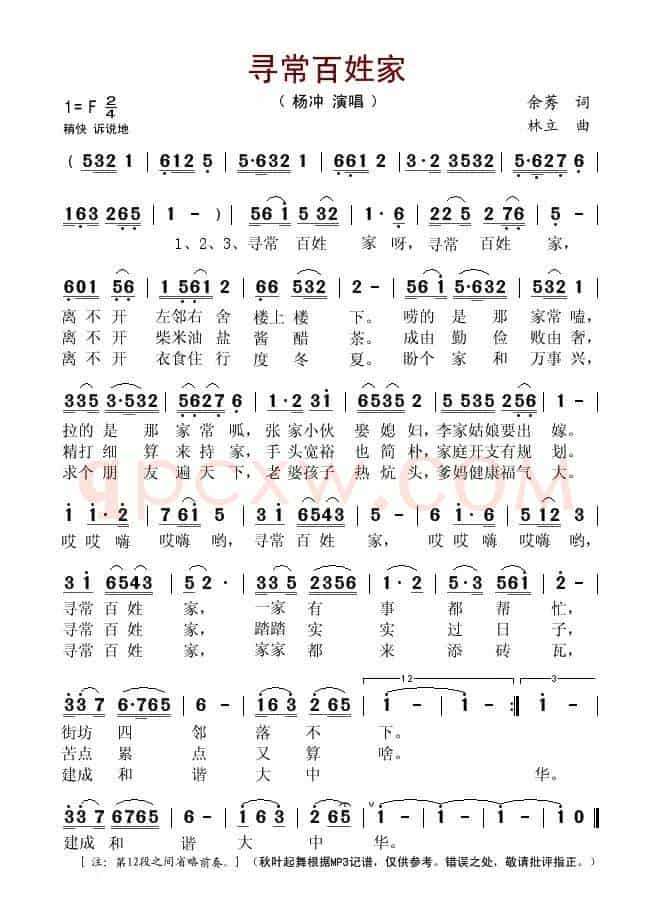 寻常百姓家
（ 杨冲 演唱 ）
1= F 2/4
余莠 词
稍快 诉说地
林立 曲
( 532 1 | 612 5 | 5·632 1 | 661 2 | 3·2 3532 | 5·627 6 |
163 265 | 1 - ) | 56 i 5 32 | 1·6 | 22 5 2 76 | 5 - |
1、2、3、寻常 百姓 家 呀，寻常 百姓 家，
601 56 | 1 561 2 | 66 532 | 2 - | 56 i 5·632 | 532 1 |
离不开 左邻右 舍 楼上楼 下。 唠的 是 那 家常嗑，
离不开 柴米油 盐 酱 醋 茶。 成由 勤 俭 败由奢，
离不开 衣食住 行 度 冬 夏。 盼个 家 和 万事兴，
335 3·532 | 5627 6 | 1·2 31 | 6535 2 | 5 535 256 | 1 - |
拉的 是 那 家 常 呱，张 家小伙 娶 媳 妇，李家姑娘要出 嫁。
精打 细 算 来 持 家，手 头宽裕 也 简 朴，家庭开支有规 划。
求个 朋 友 遍 天 下，老 婆孩子 热 炕 头，爹妈健康福气 大。
i i·2 | 7 65 6 | 3 i 6543 | 5 2 | 6 i·6 | 5 12 2 |
哎 哎 嗨 哎嗨 哟，寻常 百 姓 家， 哎哎 嗨 哎嗨 哟，
3 i 6543 | 5 2 | 332 2356 | 1·2 | 5·3 561 | 2 - |
寻常 百 姓 家， 一家 有 事 都 帮 忙，
寻常 百 姓 家， 踏踏 实 实 过 日 子，
寻常 百 姓 家， 家家 都 来 添 砖 瓦，
12
3
33 7 6·765 | 6 - | 16 3 2 65 | 1 - | 1 - :‖ 1 - |
街坊 四 邻 落 不 下。
苦点 累 点 又 算 啥。
建成 和 谐 大 中 华。
33 7 6765 | 6 - | i6 3 2 i65 | i - | i - | i - | i 0 ‖
建成 和 谐 大 中 华。
［ 注：第12段之间省略前奏。］（秋叶起舞根据MP3记谱，仅供参考。错误之处，敬请批评指正。）
qpcxw.com